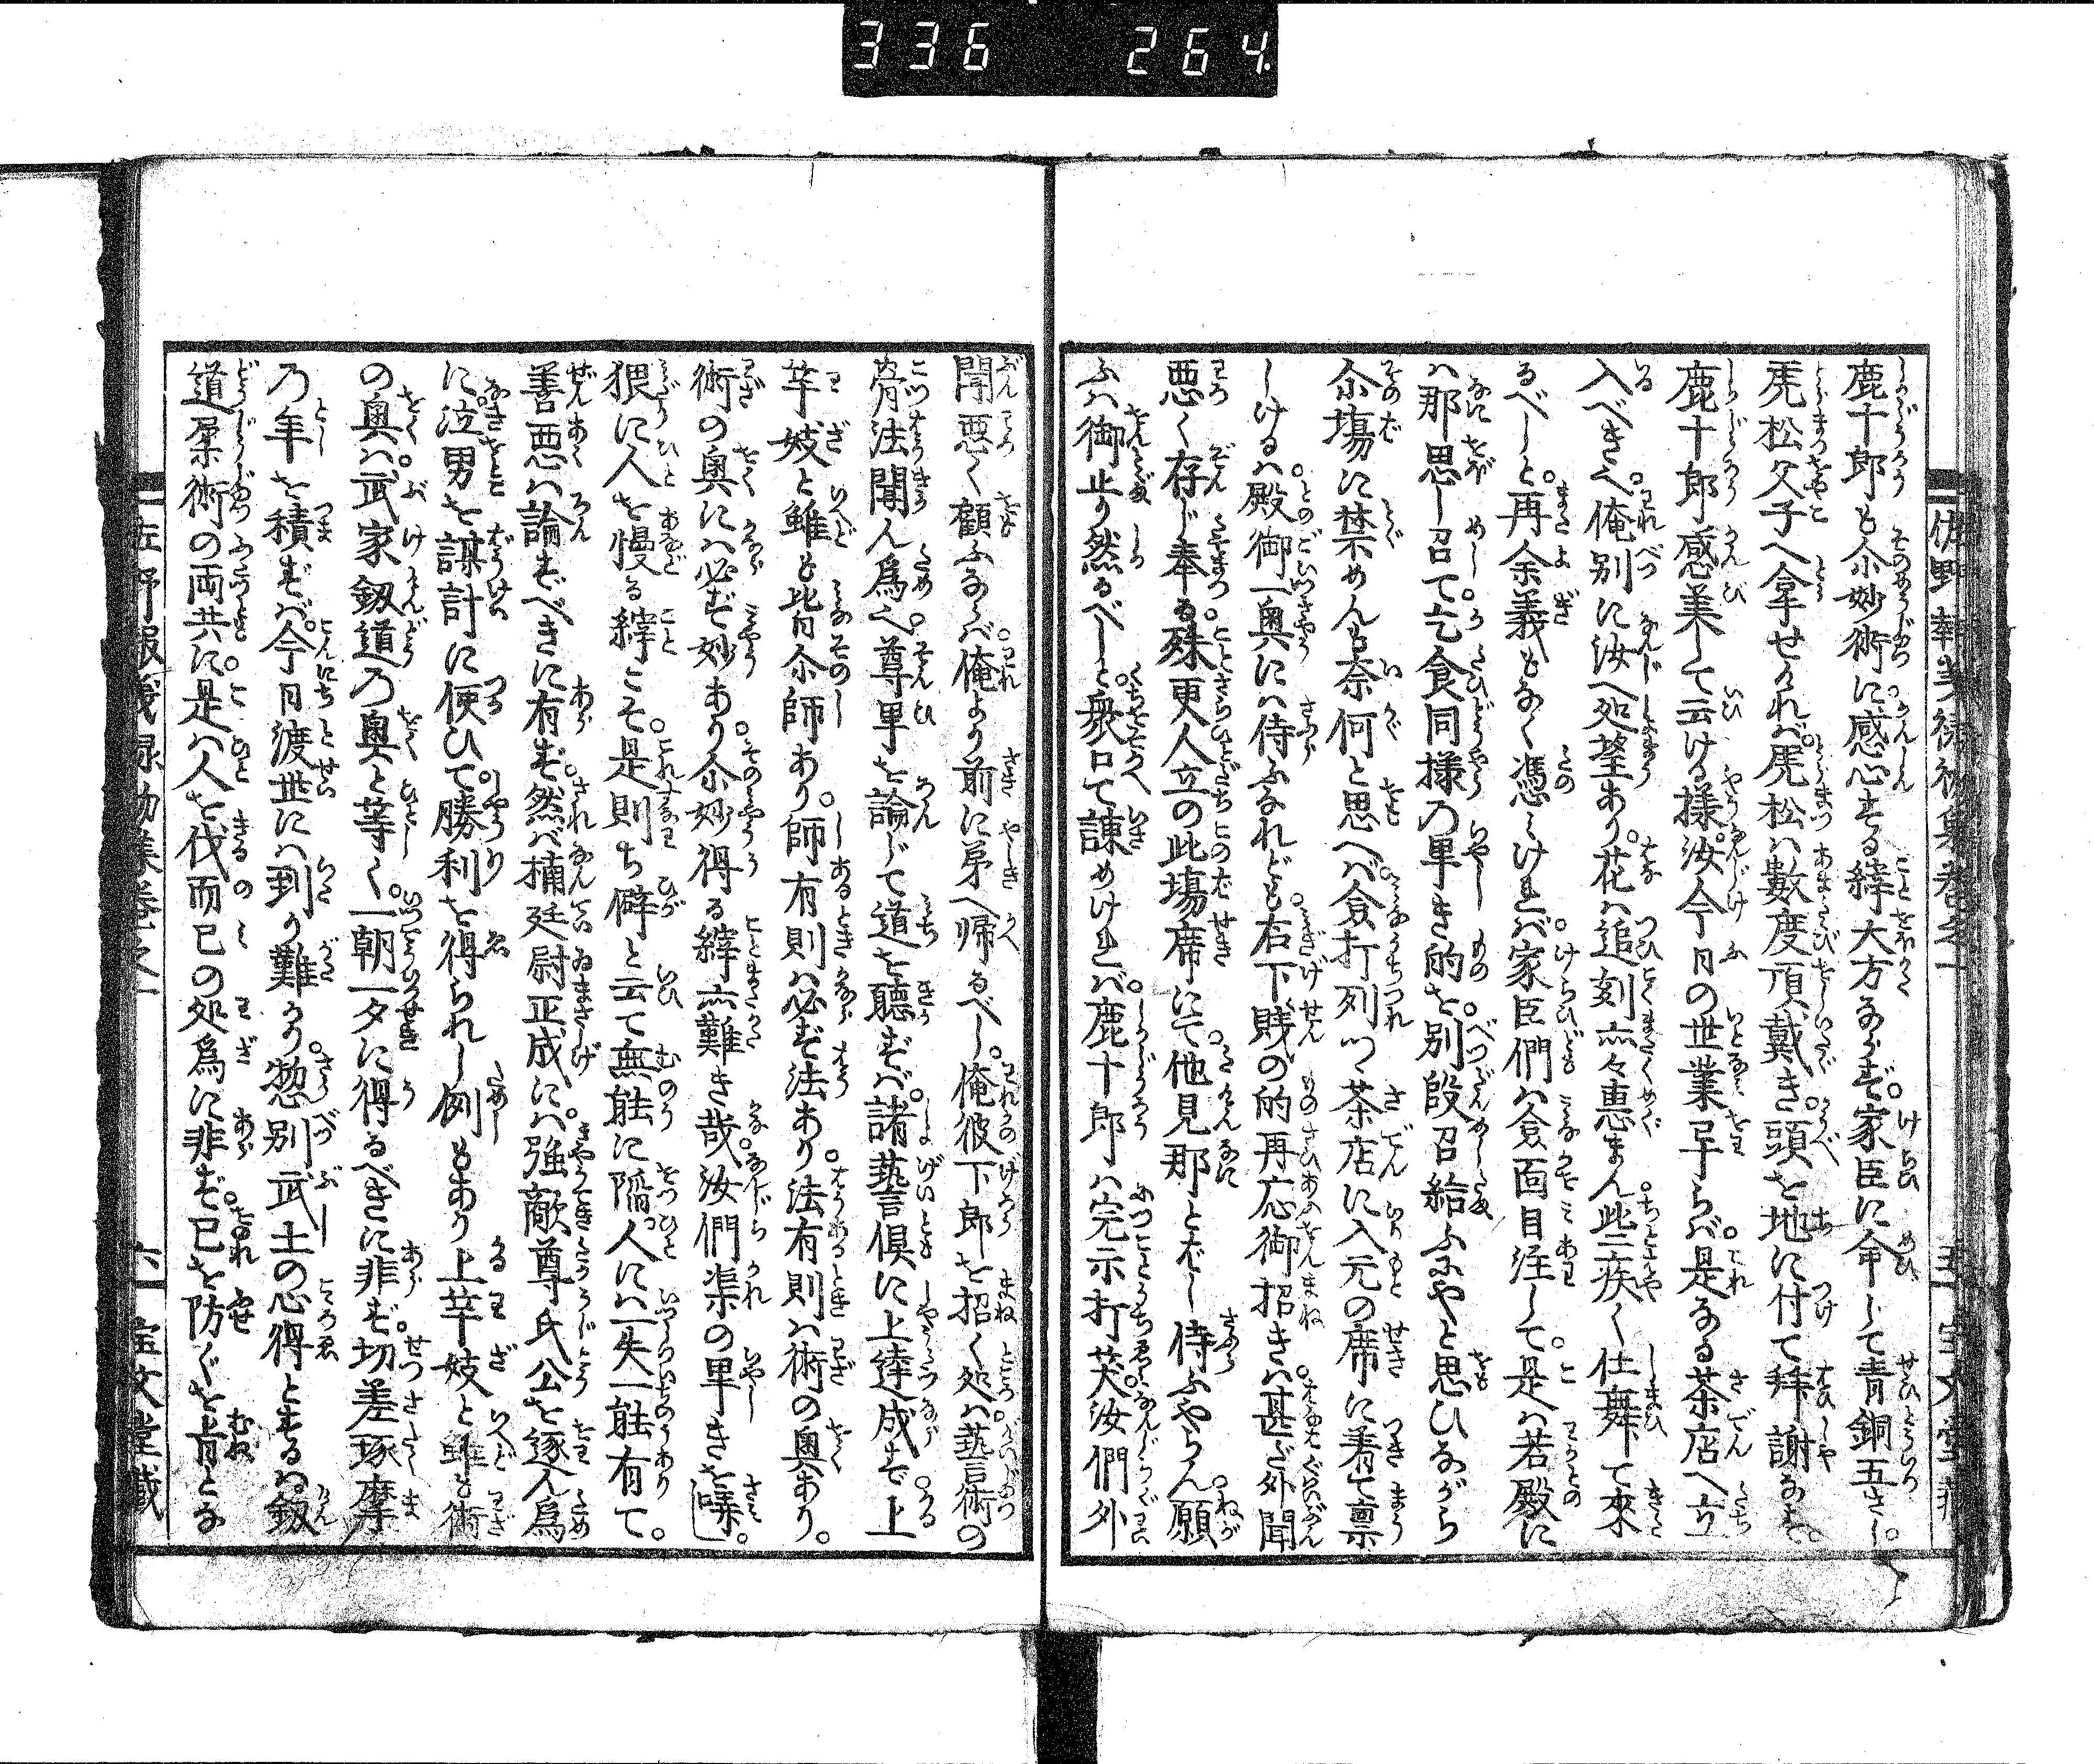 336 264.
鹿十郎も尒妙術に感心する縡大方ならず。家臣に命じて青銅五さし。
乕松父子へ拿せければ。乕松は數度頂戴き。頭を地に付て拜謝なす。
鹿十郎感美して云ける樣。汝今日の世業早らば。是なる茶店へ立
入べき也。俺別に汝へ処望あり。花は追刻亦々惠まん。些疾く仕舞て來
るべしと。再余義もなく憑みければ。家臣們は僉面目注して。是は若殿に
は那思し召て。乞食同樣の卑き的を。別段召給ふにやと思ひながら
尒塲に禁めんも奈何と思へば。僉打列つ茶店に入元の席に着て禀
しけるは。殿御一奧には侍ふなれども。右下賎の的再応御招きは。甚ど外聞
惡く存じ奉る。殊更人立の此塲席にて。他見那とだし侍ふやらん。願
ふは御止り然るべしと。衆口て諌めければ。鹿十郎は完示打笑。汝們外
聞惡く顧ふならば。俺より前に弟へ帰るべし。俺彼下郎を招く処は。藝術の
骨法聞人爲也。尊卑を論じて道を聽ずば。諸藝倶に上達成ず。上
芉妓と雖も皆尒師あり。師有則は必ず法あり。法有則は術の奧あり。
術の奧には必ず妙あり。尒妙得る縡亦難き哉。汝們渠の卑きを㗱。
猥に人を慢る縡こそ。是則ち僻と云て無能に陥。人には一失一能有て。
善惡は論ずべきに有ず。然ば楠廷尉正成には。強敵尊氏公を逐人爲
に。泣男を謀計に使ひて。勝利を得られし例もあり。上芉妓と雖も術
の奧は。武家釼道の奧と等く。一朝一夕に得るべきに非ず。切差琢摩
の年を積ずば。今日渡世には到り難かり。惣別武士の心得とするは。釼
道柔術の両共に。是は人を伐而已の処爲に非ず。己を防ぐを旨とな